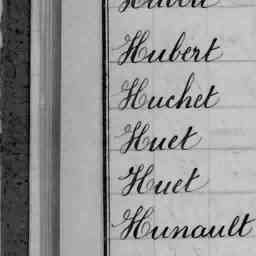 Hubert
Huchet
Huet
Huet
Hunault